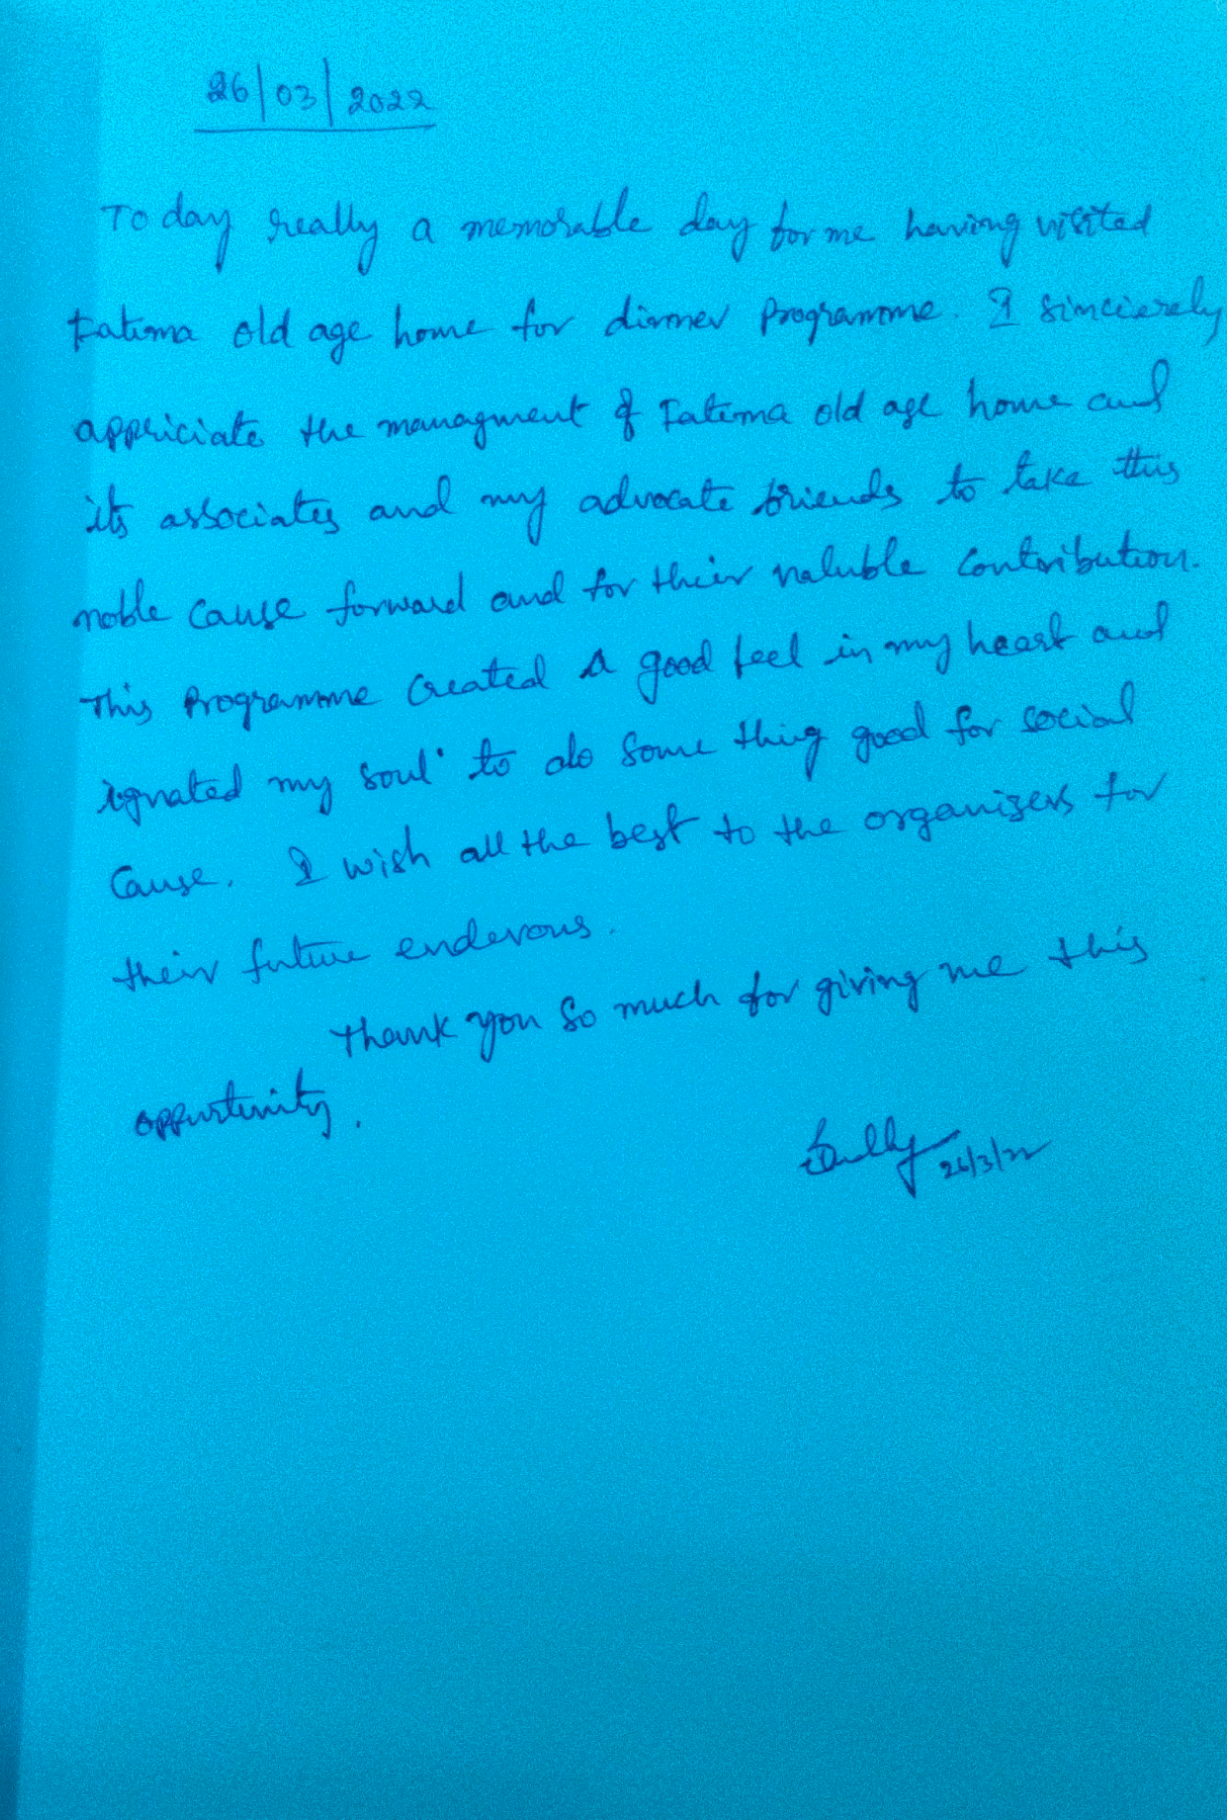 26/03/2022
Today really a memorable day for me having visited
Fatima old age home for dinner Programme. I sincierely
appriciate the managment of Fatima old age home and
its associates and my advocate friends to take this
noble cause forward and for their valuble contribution.
This Programme created a good feel in my heart and
ignated my soul to do some thing good for social
cause. I wish all the best to the organisers for
their future enderous.
Thank you so much for giving me this
oppurtunity.
26/3/22